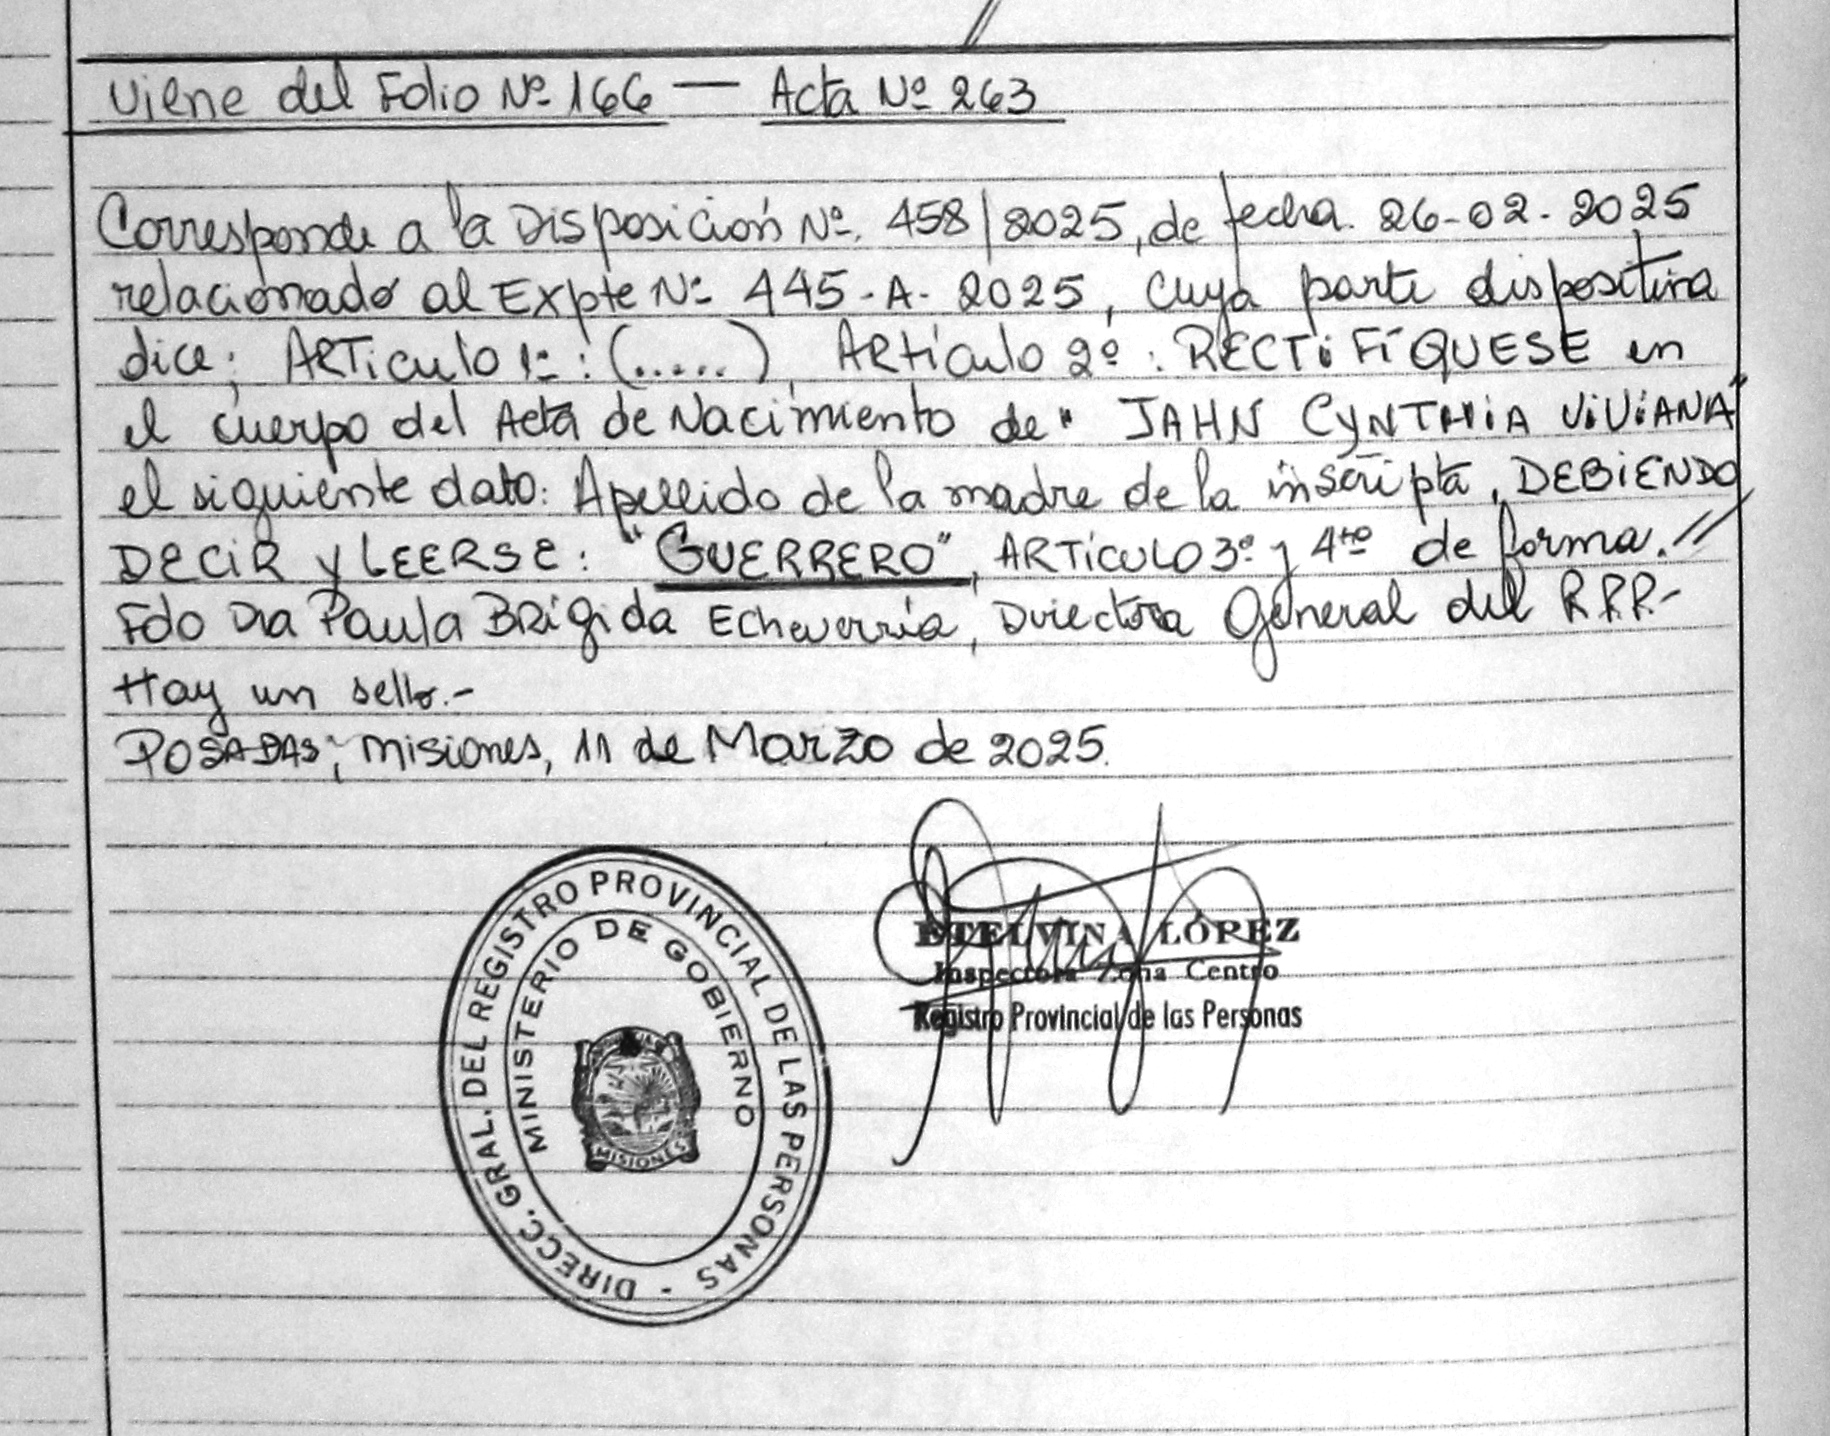 Viene del Folio Nº 166 — Acta Nº 263
Corresponde a la Disposición Nº. 458/2025, de fecha. 26-02-2025
relacionado al Expte Nº 445-A-2025, cuya parte dispositiva
dice; ARTiculo 1º: (.....), ARtículo 2º: RECTiFÍQUESE en
el cuerpo del Acta de Nacimiento de "JAHN CYNTHiA ViViANA"
el siguiente dato: Apellido de la madre de la inscripta, DEBiENDO
DECiR y LEERSE: "GUERRERO", ARTÍCULO 3º y 4to de forma.//
Fdo Dra Paula BRígida Echeverría, Directora General del R.P.P.-
Hay un sello.-
POSADAS; Misiones, 11 de Marzo de 2025.
DIRECC. GRAL. DEL REGISTRO PROVINCIAL DE LAS PERSONAS -
MINISTERIO DE GOBIERNO
MISIONES
ETELVINA LÓPEZ
Inspectora Zona Centro
Registro Provincial de las Personas